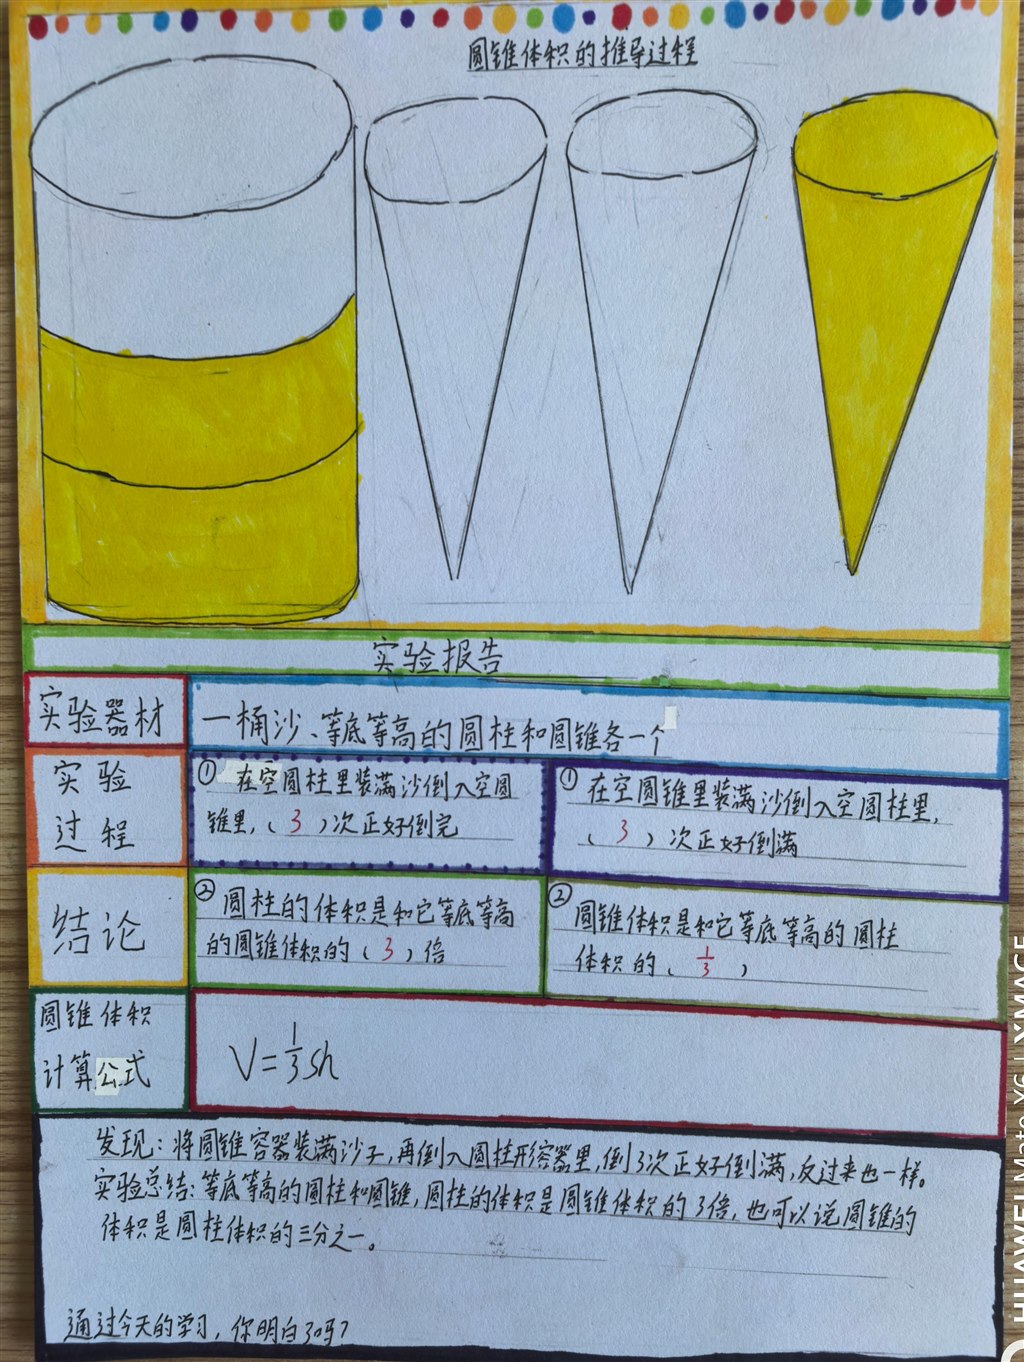 圆锥体积的推导过程
实验报告
实验器材
一桶沙、等底等高的圆柱和圆锥各一个
实验
过程
① 在空圆柱里装满沙倒入空圆
锥里,(3)次正好倒完
① 在空圆锥里装满沙倒入空圆柱里,
(3)次正好倒满
结论
② 圆柱的体积是和它等底等高
的圆锥体积的(3)倍
② 圆锥体积是和它等底等高的圆柱
体积的(1/3)
圆锥体积
计算公式
V=1/3sh
发现:将圆锥容器装满沙子,再倒入圆柱形容器里,倒3次正好倒满,反过来也一样。
实验总结:等底等高的圆柱和圆锥,圆柱的体积是圆锥体积的3倍,也可以说圆锥的
体积是圆柱体积的三分之一。
通过今天的学习,你明白了吗?
HUAWEI Mate X6 | XMAGE